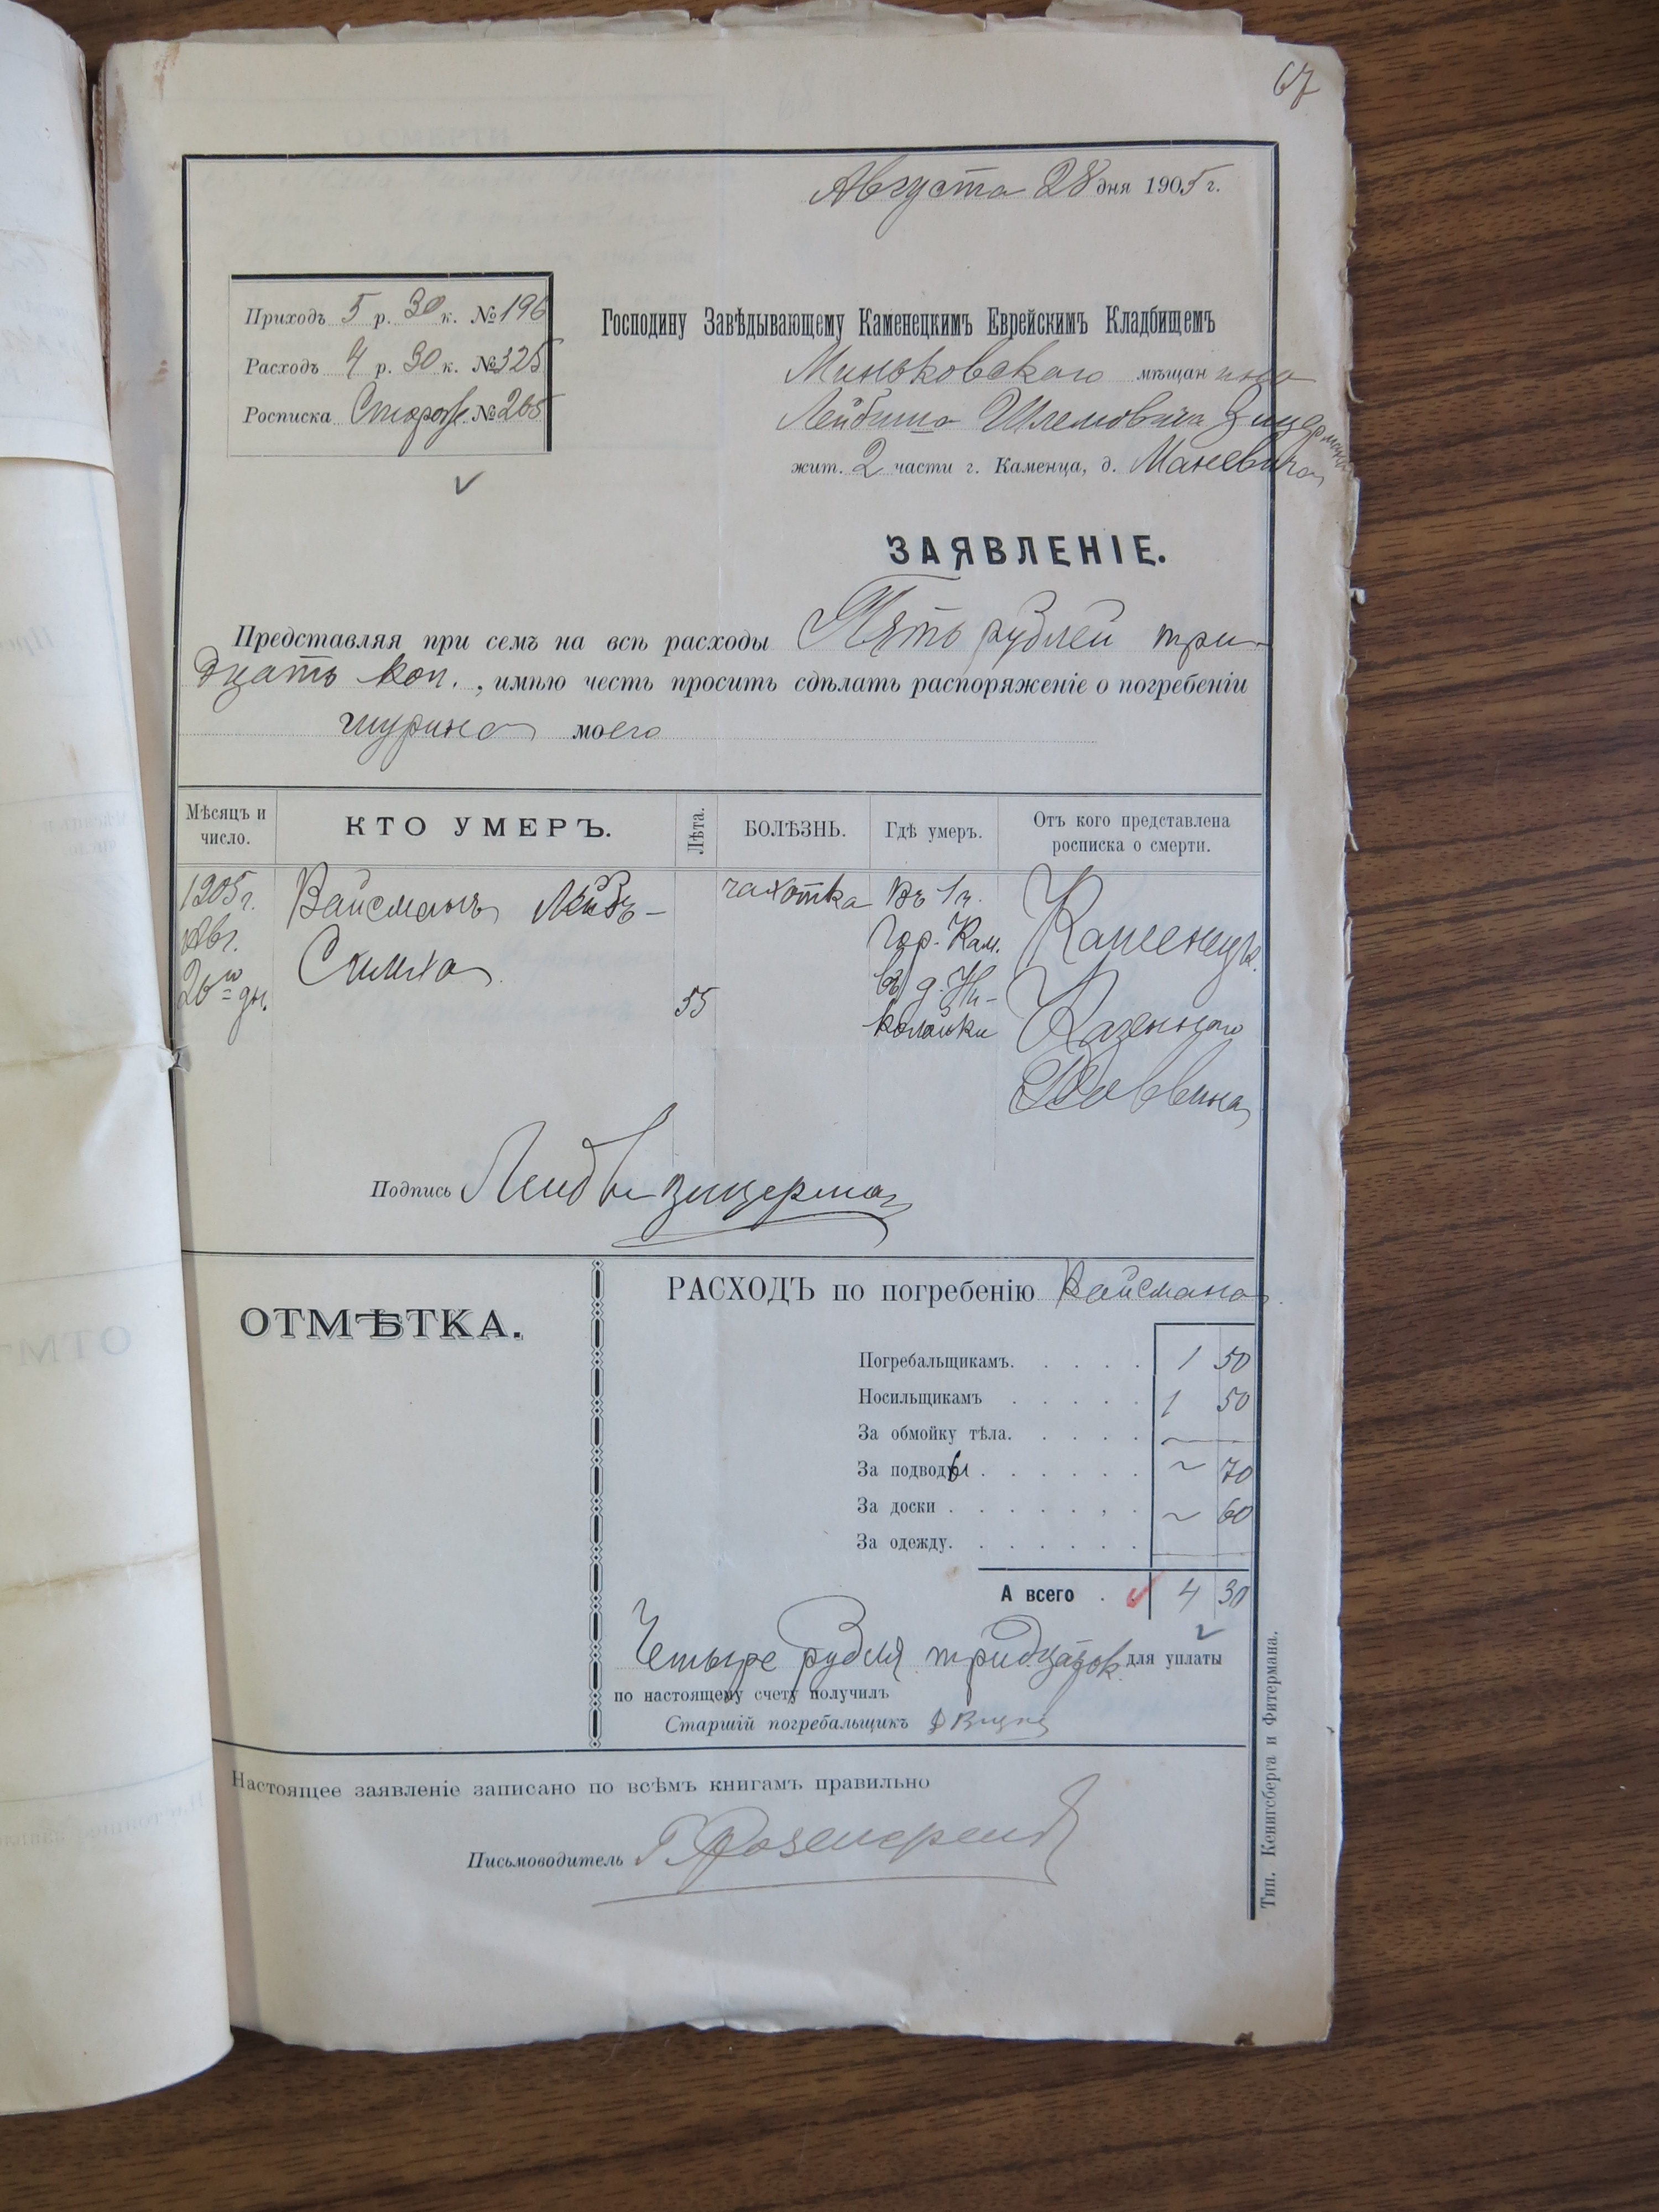 67
Августа 28 дня 1905 г.
Приходъ 5 р. 30 к. № 196
Расходъ 4 р. 30 к. № 325
Росписка Сторож. № 205
Господину Завѣдывающему Каменецкимъ Еврейскимъ Кладбищемъ
Миньковскаго мѣщанина
Лейбиша Шлемовича Зицермана
жит. 2 части г. Каменца, д. Маневича
ЗАЯВЛЕНІЕ.
Представляя при семъ на всѣ расходы Пять рублей три-
дцать коп., имѣю честь просить сдѣлать распоряженіе о погребеніи
шурина моего
Мѣсяцъ и число. КТО УМЕРЪ. Лѣта. БОЛѢЗНЬ. Гдѣ умеръ. Отъ кого представлена росписка о смерти.
1905 г. Вайсманъ Лейбъ- чахотка Въ 1 ч. Каменецк.
Авг. Симха гор. Кам.
26го дн. 55 въ д. Ни- Казеннаго
колайки Раввина
Подпись Лейб Зицерман
ОТМѢТКА.
РАСХОДЪ по погребенію Вайсмана
Погребальщикамъ. 1 50
Носильщикамъ 1 50
За обмойку тѣла. —
За подводы ~ 70
За доски ~ 60
За одежду.
А всего 4 30
Четыре рубля тридцать к. для уплаты
по настоящему счету получилъ
Старшій погребальщикъ
Настоящее заявленіе записано по всѣмъ книгамъ правильно
Письмоводитель
Тип. Кенигсберга и Фитермана.